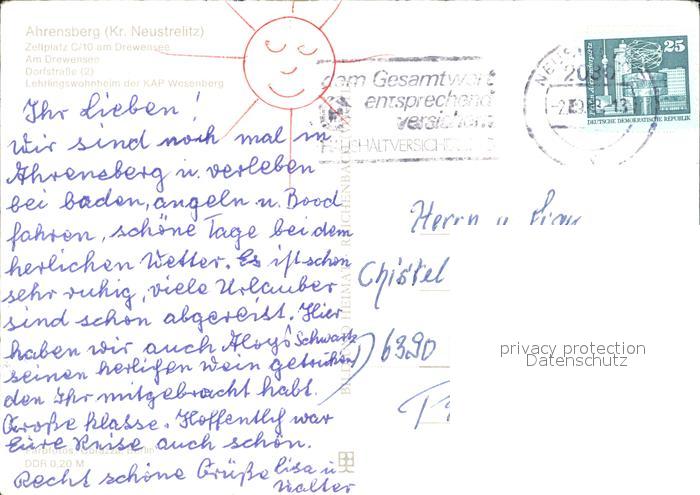 Ahrensberg (Kr. Neustrelitz)
Zeltplatz C/10 am Drewensee
Am Drewensee
Dorfstraße (2)
Lehrlingswohnheim der KAP Wesenberg
Ihr Lieben!
Wir sind noch mal in
Ahrensberg u. verleben
bei baden, angeln u. Bood
fahren, schöne Tage bei dem
herlichen Wetter. Es ist schon
sehr ruhig, viele Urlauber
sind schon abgereist. Hier
haben wir auch Aloys Schwartz
seinen herlichen Wein getrunken
den Ihr mitgebracht habt.
Große Klasse. Hoffentlich war
Eure Reise auch schön.
Recht schöne Grüße Lisa u.
Walter
DDR 0,20 M
BILD UND HEIMAT REICHENBACH
dem Gesamtwert
entsprechend
versichern
HAUSHALTVERSICH
2080
25
DEUTSCHE DEMOKRATISCHE REPUBLIK
Herrn u. Frau
Christel
6390
privacy protection
Datenschutz